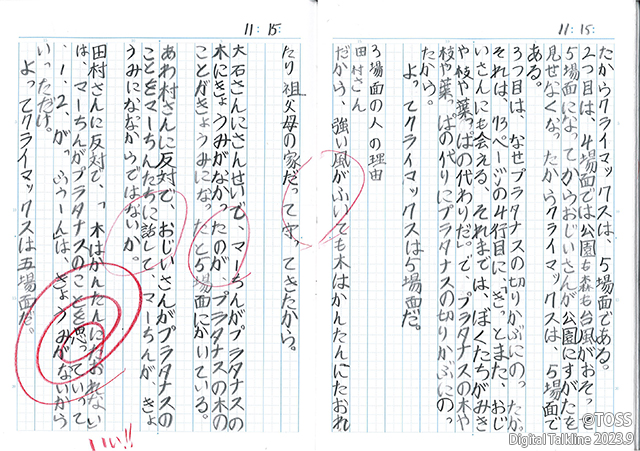 11：15：
たからクライマックスは、5場面である。
2つ目は、4場面では公園も森も台風がおそってき
5場面になってからおじいさんが公園にすがたを
見せなくなったからクライマックスは、5場面で
ある。
3つ目は、なぜプラタナスの切りかぶにのったか。
それは、73ページの4行目に「きっとまた、おじ
いさんにも会える、それまでは、ぼくたちがみき
や枝や葉っぱの代わりだ。」で、プラタナスの木や
枝や葉っぱの代りにプラタナスの切りかぶにのっ
たから。
よってクライマックスは5場面だ。
3場面の人の理由
田村さん
だから、強い風がふいても木はかんたんにたおれ
11：15：
たり祖父母の家だって守ってきたから。
大石さんにさんせいで、マーちんがプラタナスの
木にきょうみがなかったのがプラタナスの木の
ことがきょうみになったと5場面にかいている。
あわ村さんに反対で、おじいさんがプラタナスの
ことをマーちんたちに話してマーちんがきょ
うみになったからではないか。
田村さんに反対で、っ木はかんたんにたおれない
は、マーちんがプラタナスのことを思っていって
、1、2、が
きょうみがないから
いっただけ。
よってクライマックスは五場面だ。
いい!!
©TOSS
Digital Talkline 2023.9